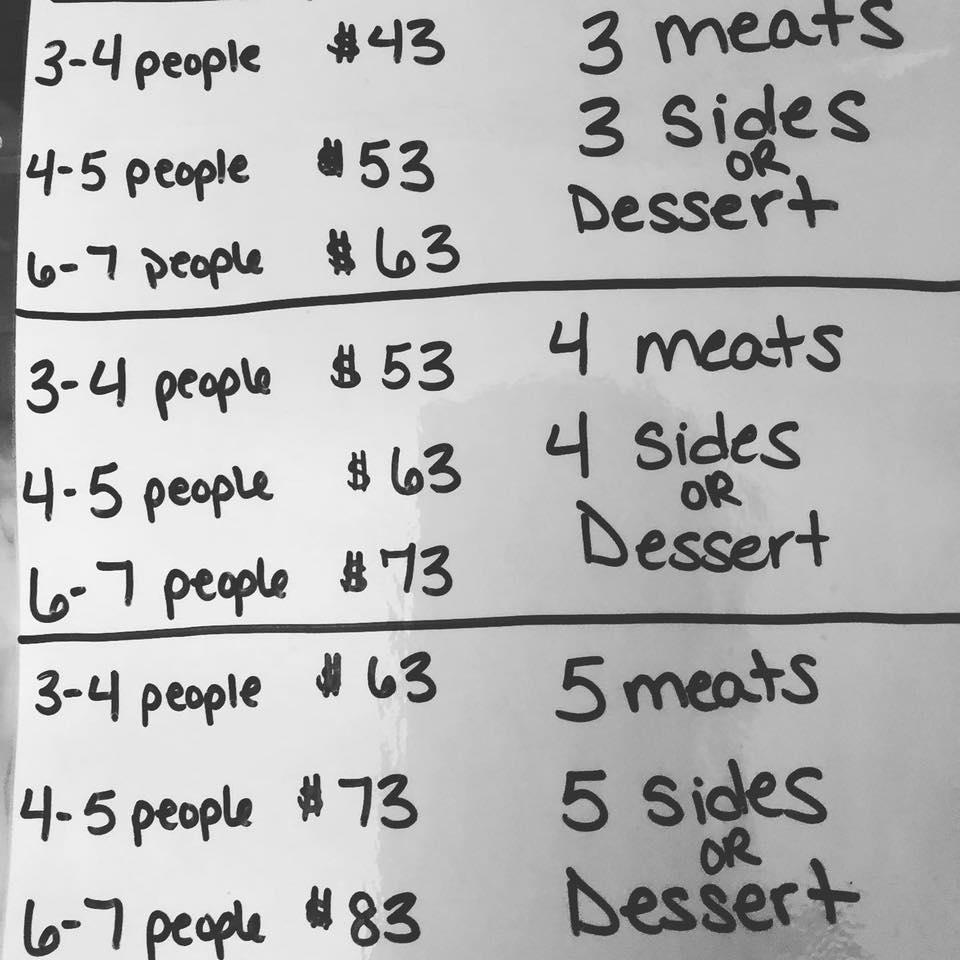 3-4 people $43 3 meats
3 sides
OR
4-5 people $53
Dessert
6-7 people $63
3-4 people $53 4 meats
4 sides
OR
4-5 people $63
Dessert
6-7 people $73
3-4 people $63 5 meats
4-5 people $73 5 sides
OR
6-7 people $83 Dessert